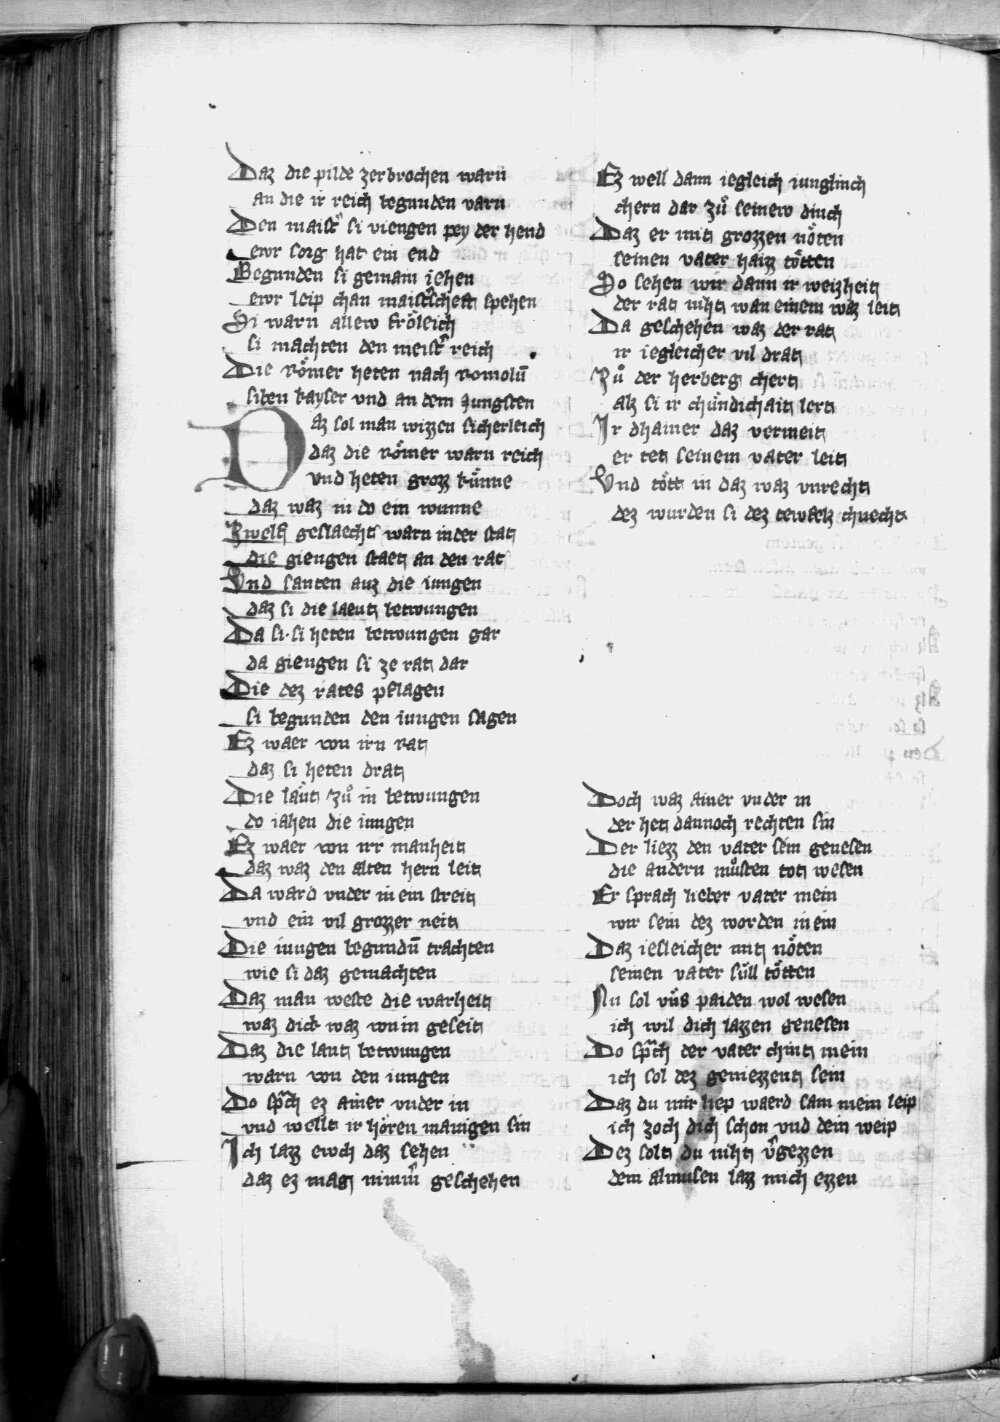 Daz die pilde zerbrochen warn
an die ir reich begunden varn
Den maistˀ si viengen pey der hend
ewr sorg hat ein end
Begunden si gemain iehen
ewr leip chan maistˀschest spehen
Si warn allew frőleich
si machten den meistˀ reich
Die Rőmer heten nach Romolū
siben kayser vnd an dem Jungsten
Daz sol man wizzen sicherleich
daz die rőmer warn reich
vnd heten groz kűnne
daz waz in do ein wunne
Zwelf geslaecht warn in der stat
die giengen staet an den rat
Vnd santen auz die iungen
daz si die laeut betwungen
Da si si heten betwungen gar
da giengen si ze rat dar
Die dez rates pflagen
si begunden den iungen sagen
Ez waer von irn rat
daz si heten drat
Die laůt zů in betwungen
do iahen die iungen
Ez waer von irˀ manheit
daz waz den alten hern leit
Da ward vnder in ein streit
vnd ein vil grozzer neit
Die iungen begundū trachten
wie si daz gemachten
Daz man weste die warheit
waz dick waz von in geseit
Daz die laut betwungen
warn von den iungen
Do spͣch ez ainer vnder in
vnd wellt ir hören manigen sin
Ich lazz ewch daz sehen
daz ez mag nimmˀ geschehen
Ez well dann iegleich iunglinch
chern dar zů seinew dinch
Daz er mit grozzen nőten
seinen vater haizz tőtten
So sehen wir dann ir weizheit
der rat niht wan einem waz leit
Da geschehen waz der rat
ir iegleicher vil drat
Zů der herberg chert
alz si ir chűndichait lert
Ir dhainer daz vermeit
er tet seinem vater leit
Vnd tőtt in daz waz vnrecht
dez wurden si dez tewfelz chnecht
Doch waz ainer vnder in
der het dannoch rechten sin
Der liezz den vater sein genesen
die andern můsten tot wesen
Er sprach lieber vater mein
wir sein dez worden in ein
Daz iesleicher mit nőten
seinen vater sűll tőtten
Nu sol vns paiden wol wesen
ich wil dich lazzen genesen
Do spͣch der vater chint mein
ich sol dez geniezzent sein
Daz du mir liep waerd sam mein leip
ich zoch dich schon vnd dein weip
Dez solt du niht vˀgezzen
dein almusen lazz mich ezzen